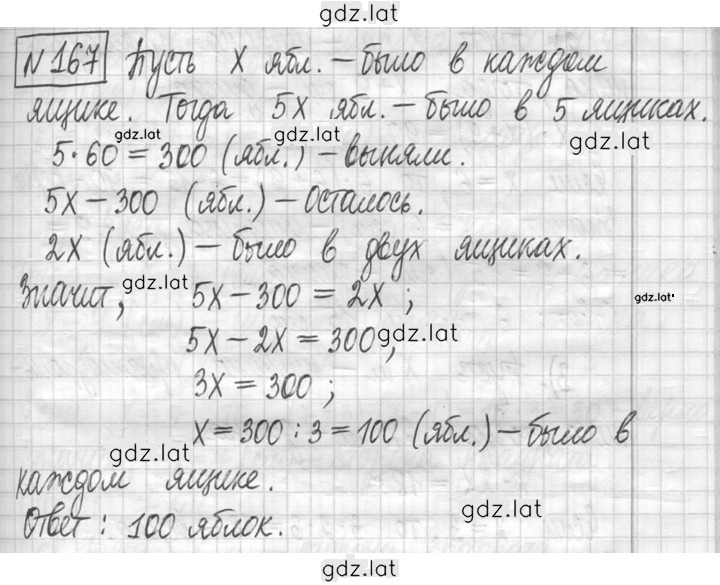 gdz.lat
№ 167 Пусть х ябл. – было в каждом
ящике. Тогда 5х ябл. – было в 5 ящиках.
gdz.lat gdz.lat gdz.lat
5·60 = 300 (ябл.) – выняли.
5х – 300 (ябл.) – осталось.
2х (ябл.) – было в двух ящиках.
gdz.lat gdz.lat
Значит, 5х – 300 = 2х ;
5х – 2х = 300 ;
gdz.lat
3х = 300 ;
х = 300 : 3 = 100 (ябл.) – было в
gdz.lat
каждом ящике.
gdz.lat
Ответ : 100 яблок.
gdz.lat